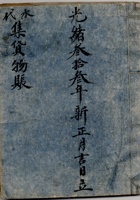 光緒叁拾叁年新正月吉日立
永代
集貨物賬